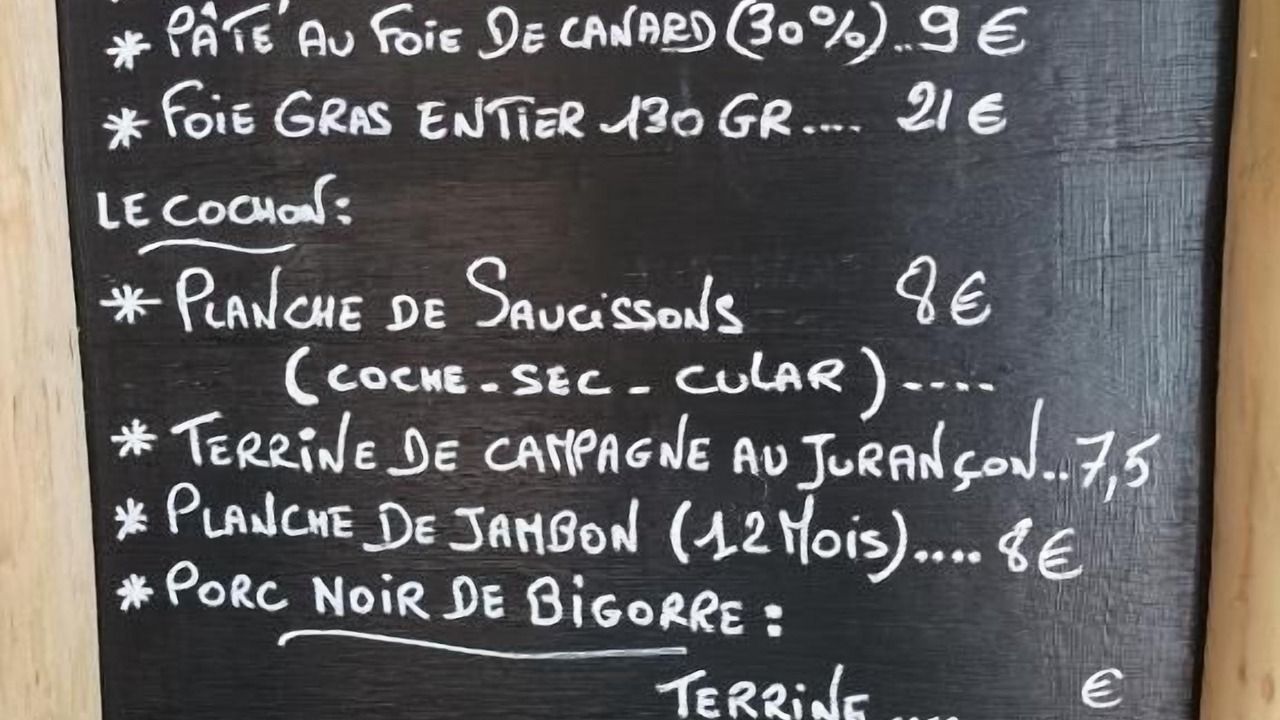 * PÂTÉ AU FOIE DE CANARD (30%)..9 €
* FOIE GRAS ENTIER 130 GR.... 21 €
LE COCHON:
* PLANCHE DE SAUCISSONS 8 €
(COCHE - SEC - CULAR) ----
* TERRINE DE CAMPAGNE AU JURANÇON..7,5
* PLANCHE DE JAMBON (12 MOIS).... 8€
* PORC NOIR DE BIGORRE :
TERRINE .... €